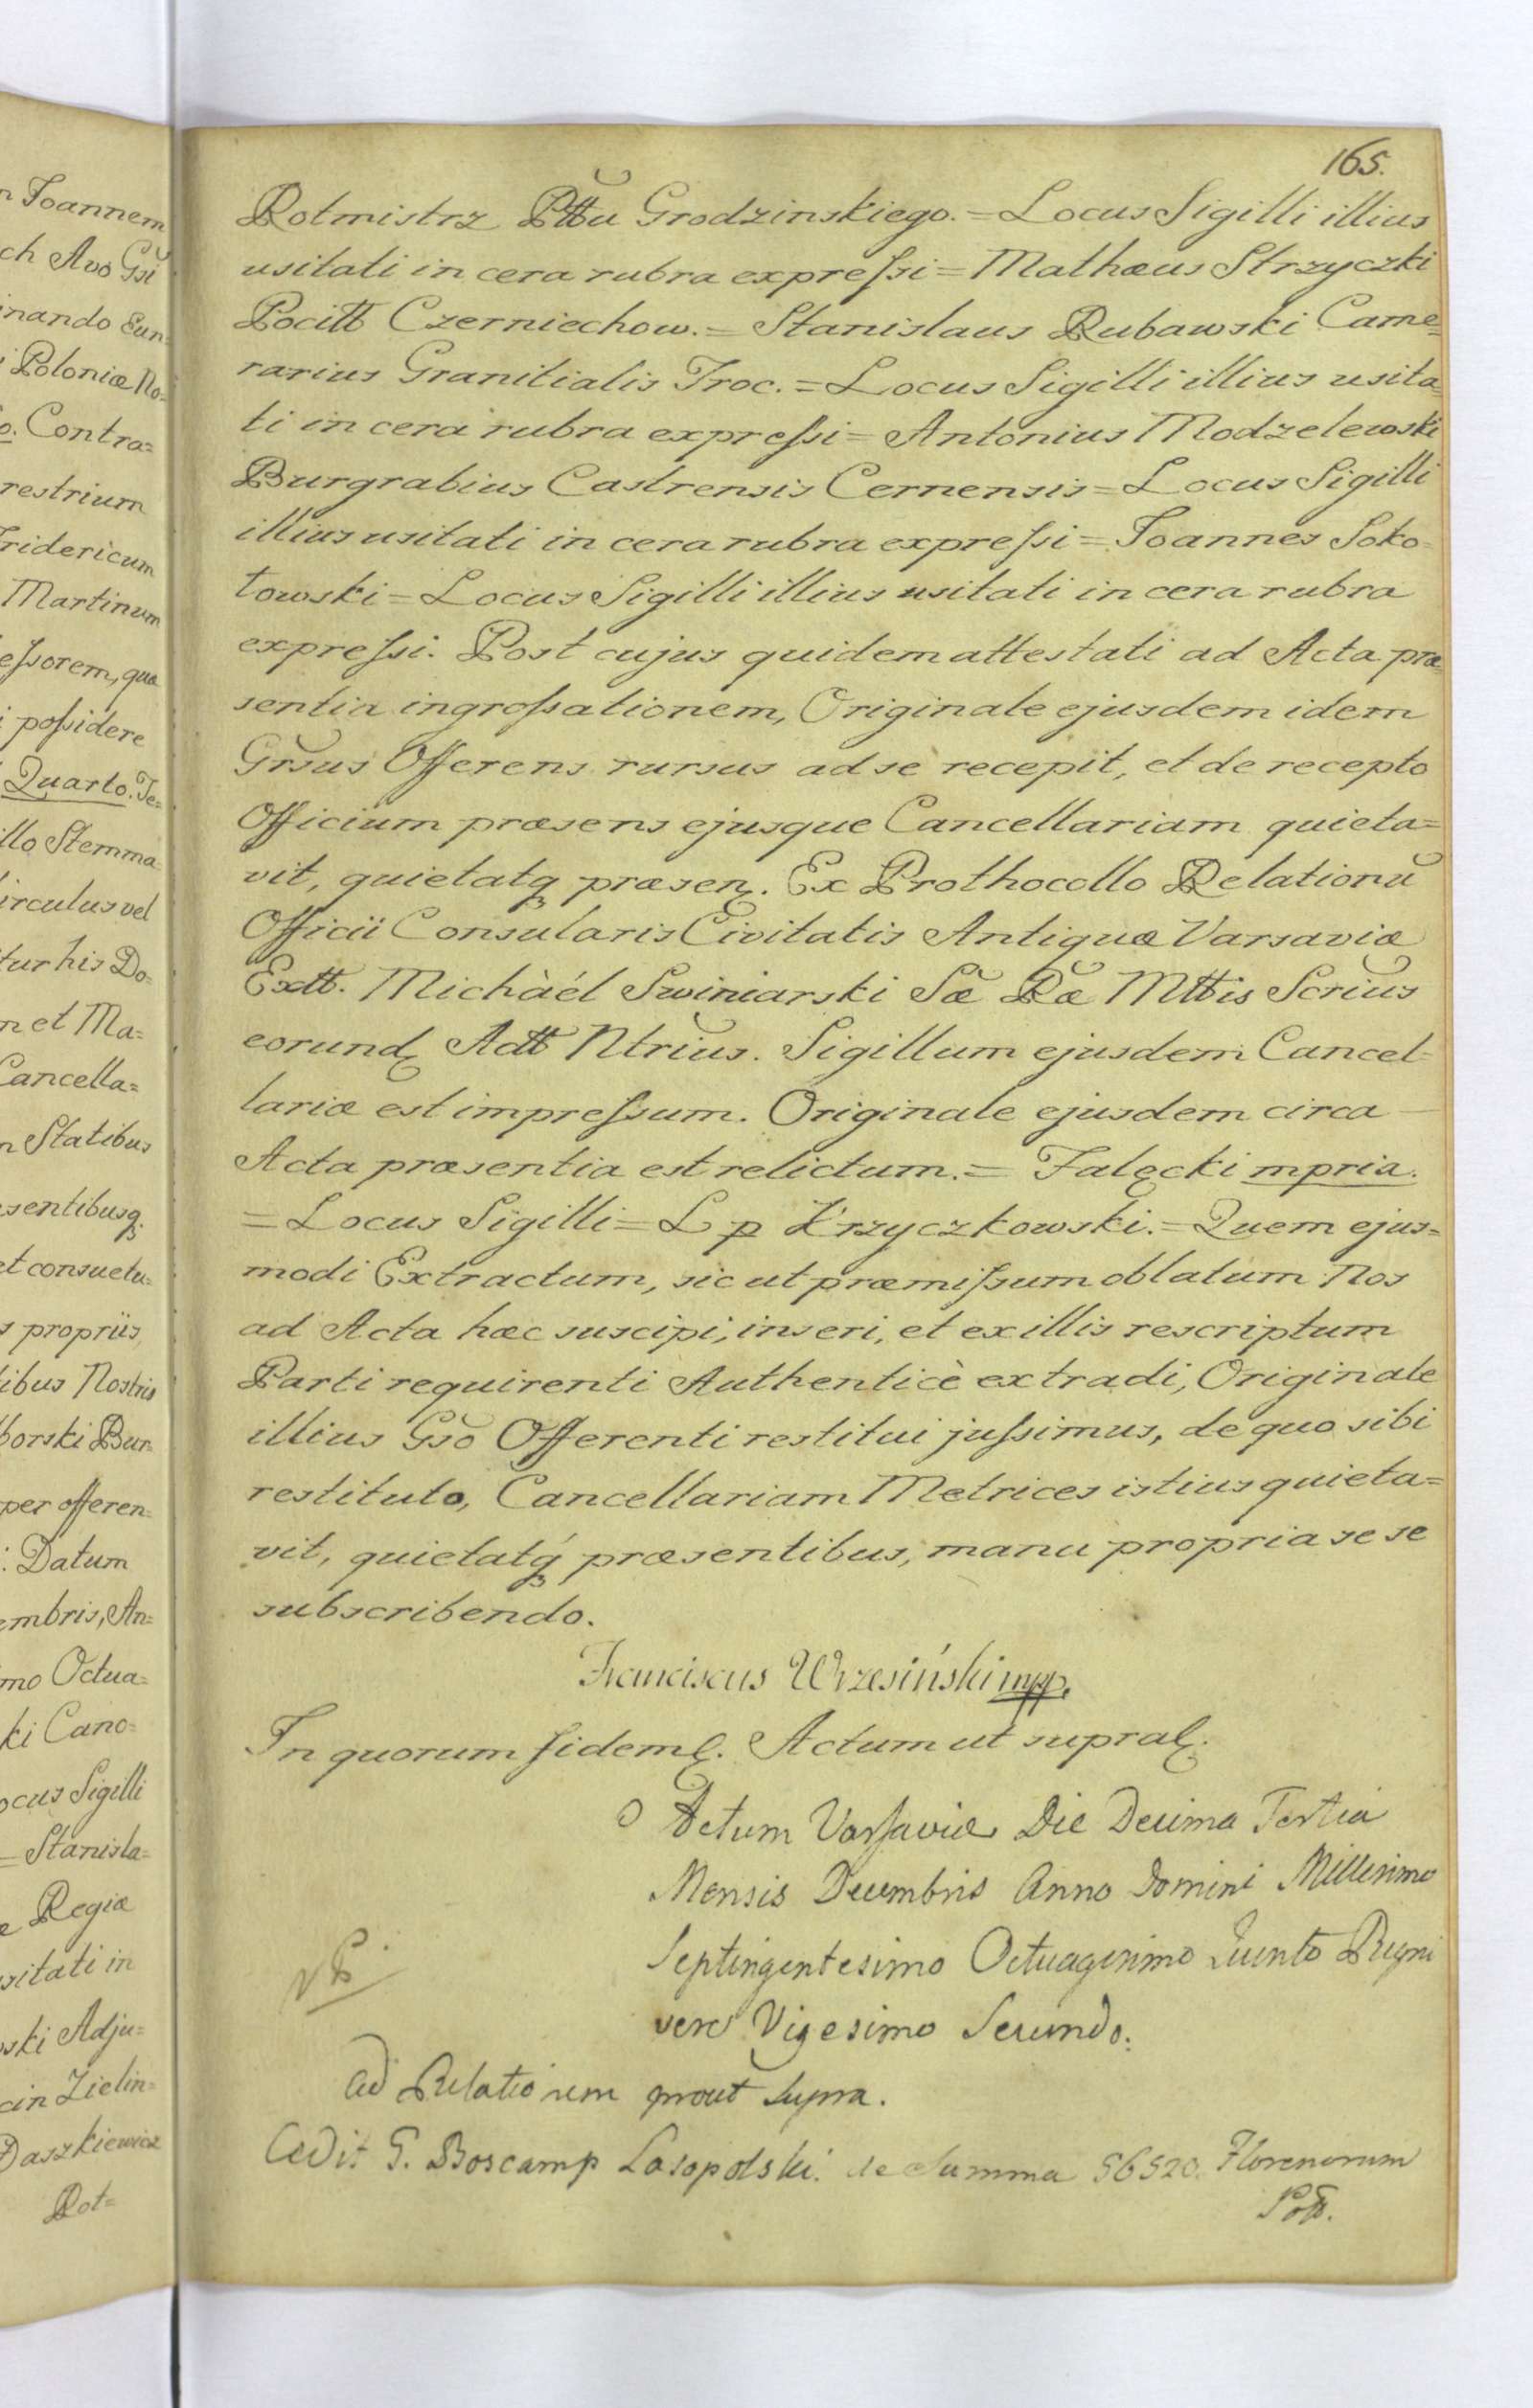 n Joannem
ch Avo Gsi
inando Eun=
i Poloniæ No=
o. Contra=
restrium
Fridericum
Martinum
eſsorem, qua
i poſsidere
Quarto. Te=
illo Stemma
irculus vel
tur his Do=
n et Ma=
Cancella=
n Statibus
sentibusq
et consuetu=
s propriis
tibus Nostris
borski Bur=
per offeren=
: Datum
embris, An=
mo Octua=
ki Cano=
ocus Sigilli
= Stanisla=
e Regiæ
sitati in
ski Adju=
cin Zielin=
Daszkiewicz
Rot=
165.
Rotmistrz Pttu Grodzinskiego. = Locus Sigilli illius
usitati in cera rubra expreſsi = Mathæus Strzyczki
Pocitt Czerniechow. = Stanislaus Rubawski Came=
rarius Granitialis Troc. = Locus Sigilli illius usita=
ti in cera rubra expreſsi = Antonius Modzelewski
Burgrabius Castrensis Cernensis = Locus Sigilli
illius usitati in cera rubra expreſsi = Joannes Soko=
towski = Locus Sigilli illius usitati in cera rubra
expreſsi. Post cujus quidem attestati ad Acta præ
sentia ingroſsationem, Originale ejusdem idem
Grsus Offerens rursus ad se recepit, et de recepto
Officium præsens ejusque Cancellariam quieta=
vit, quietatq præsen. Ex Prothocollo Relationū
Officii Consularis Civitatis Antiquæ Varsaviæ
Extt. Michàél Swiniarski Sæ Ræ Mttis Scrius
eorund Actt Ntrius. Sigillum ejusdem Cancel=
lariæ est impreſsum. Originale ejusdem circa
Acta præsentia est relictum. = Falęcki mpria.
= Locus Sigilli = L p Krzyczkowski. = Quem ejus=
modi Extractum, sic ut præmiſsum oblatum Nos
ad Acta hæc suscipi, inseri, et ex illis rescriptum
Parti requirenti Authenticè extradi, Originale
illius Gso Offerenti restitui juſsimus, de quo sibi
restituto, Cancellariam Metrices istius quieta=
vit, quietatq́ præsentibus, manu propria se se
subscribendo.
Franciscus Wrzesiński mpp.
In quorum fidem. Actum ut supra.
Actum Varſaviæ Die Decima Tertia
Mensis Decembris Anno Domini Millesimo
Septingentesimo Octuagesimo Quinto Regni
vero Vigesimo Secundo.
Ad Relationem prout Supra.
Cedit G. Boscamp Lasopolski de Summa 56520. Florenorum
Poll.